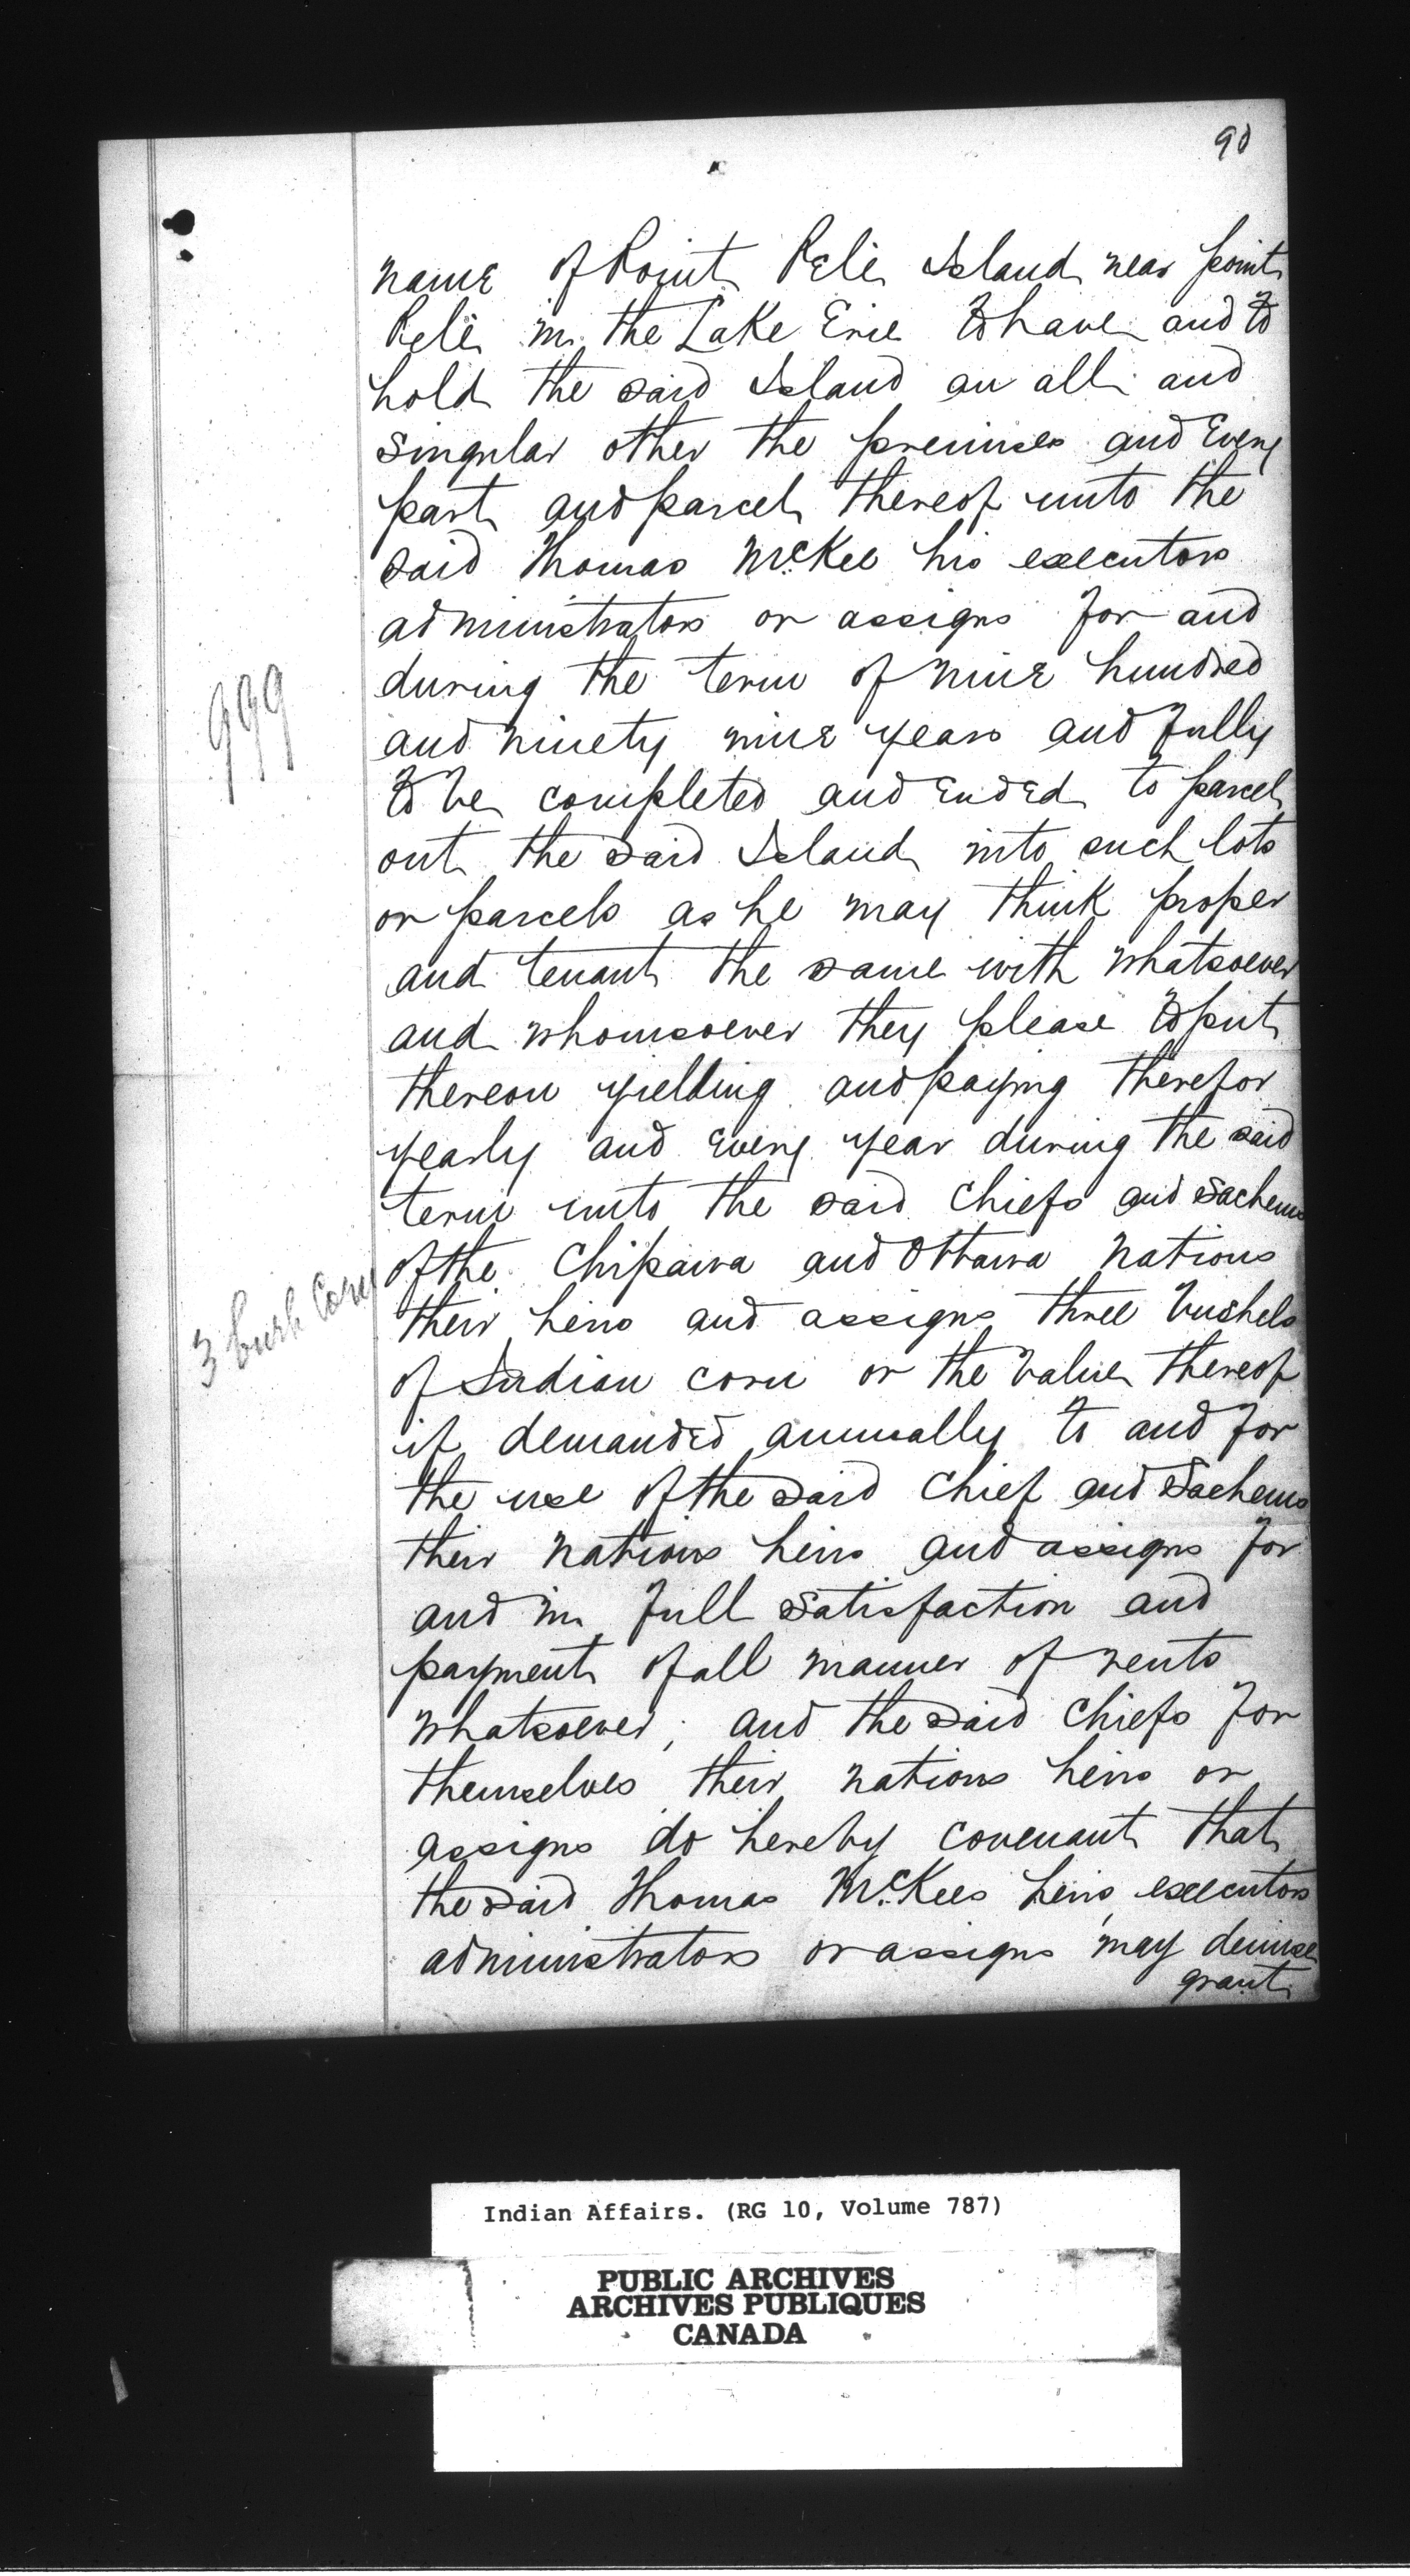 90
name of Point Pelè Island near point
Pelè in the Lake Erie to have and to
hold the said Island an all and
singular other the premises and Every
part and parcel thereof unto the
said Thomas McKee his executors
administrators or assigns for and
during the term of nine hundred
999
and ninety nine years and fully
to be completed and Ended to parcel
out the said Island into such lots
or parcels as he may think proper
and tenant the same with whatsoever
and whomsoever they please to put
thereon yielding and paying therefor
yearly and every year during the said
term unto the said Chiefs and Sachems
of the Chipawa and Ottawa Nations
3 bush Corn
their heirs and assigns three bushels
of Indian corn or the value thereof
if demanded annually to and for
the use of the said Chief and Sachems
their nations heirs and assigns for
and in full satisfaction and
payment of all manner of rents
whatsoever; and the said Chiefs for
themselves their nations heirs or
assigns do hereby covenant that
the said Thomas McKees heirs, executors
administrators or assigns may demise
grant
Indian Affairs. (RG 10, Volume 787)
PUBLIC ARCHIVES
ARCHIVES PUBLIQUES
CANADA